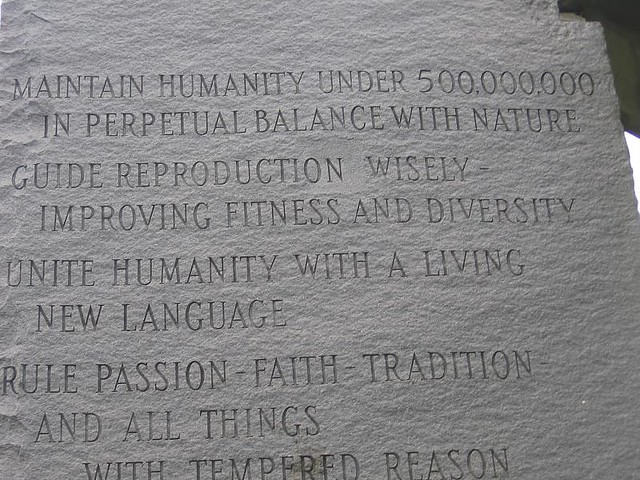 MAINTAIN HUMANITY UNDER 500,000,000
IN PERPETUAL BALANCE WITH NATURE
GUIDE REPRODUCTION WISELY -
IMPROVING FITNESS AND DIVERSITY
UNITE HUMANITY WITH A LIVING
NEW LANGUAGE
RULE PASSION - FAITH - TRADITION -
AND ALL THINGS
WITH TEMPERED REASON